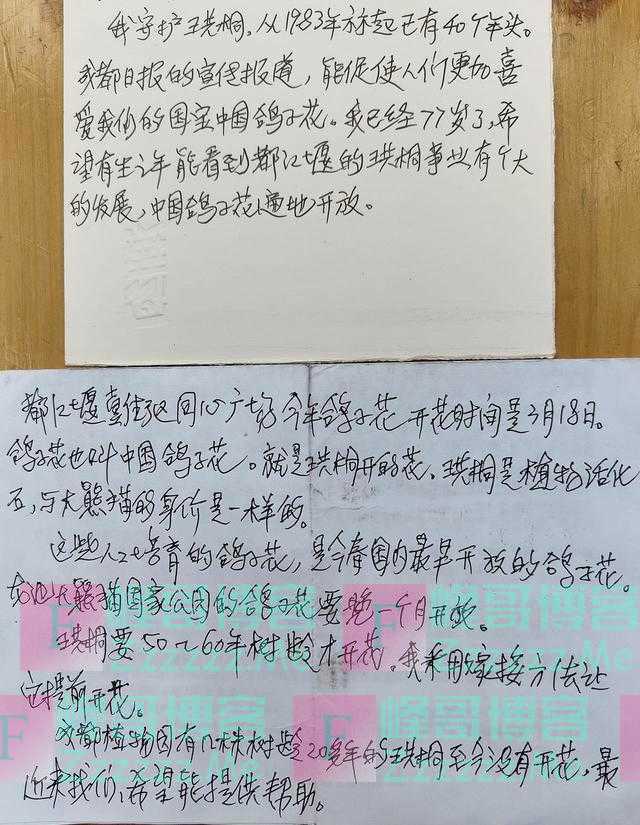 我守护珙桐,从1983年算起已有40个年头。
成都日报的宣传报道,能促使人们更加喜
爱我们的国宝中国鸽子花。我已经77岁了,希
望有生之年能看到都江堰的珙桐事业有个大
的发展,中国鸽子花遍地开放。
都江堰壹街区同心广场今年鸽子花开花时间是3月18日。
鸽子花也叫中国鸽子花。就是珙桐开的花。珙桐是植物活化
石,与大熊猫的身价是一样的。
这些人工培育的鸽子花,是今春国内最早开放的鸽子花。
大熊猫国家公园的鸽子花要晚一个月开放。
珙桐要50~60年树龄才开花。我采用嫁接方法让
它提前开花。
成都植物园有几株树龄20多年的珙桐至今没有开花,最
近来我们,希望能提供帮助。
峰哥博客
Zzzzzz.Me
峰哥博客
Zzzzzz.Me
F 峰哥博客
Zzzzzz.Me
F 峰哥博客
Zzzzzz.Me